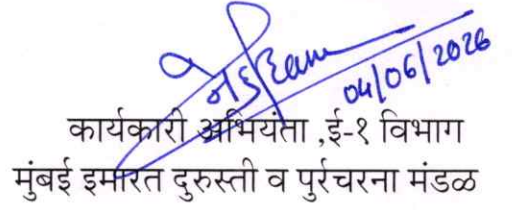 04/06/2026
कार्यकारी अभियंता ,ई-१ विभाग
मुंबई इमारत दुरुस्ती व पुर्रचरना मंडळ